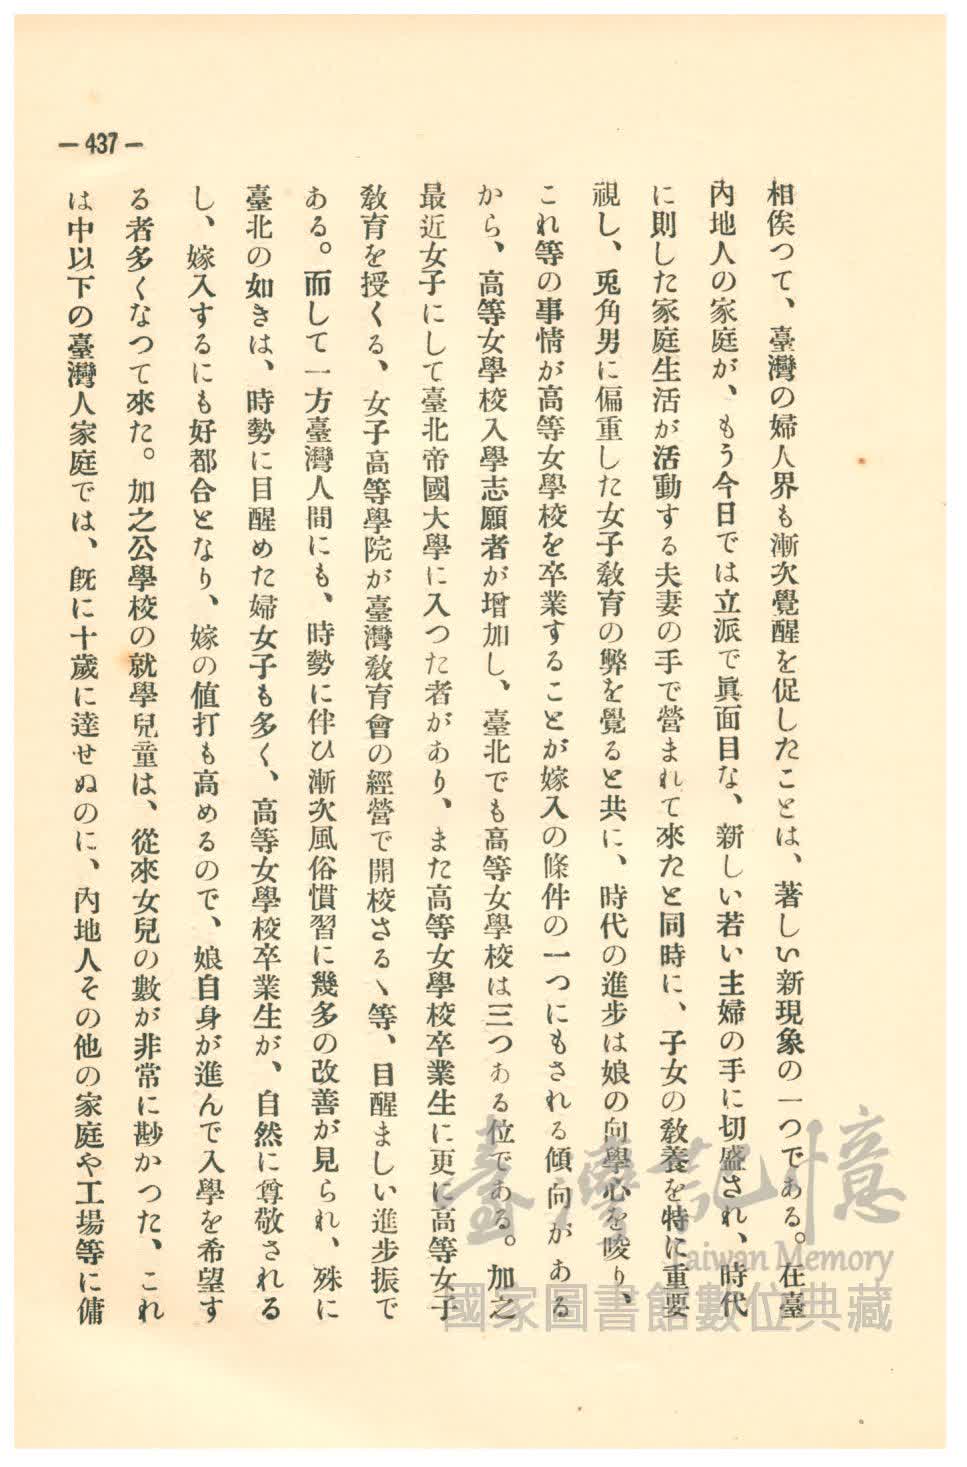 — 437 —
相俟つて、臺灣の婦人界も漸次覺醒を促したことは、著しい新現象の一つである。在臺
內地人の家庭が、もう今日では立派で眞面目な、新しい若い主婦の手に切盛され、時代
に則した家庭生活が活動する夫妻の手で營まれて來たと同時に、子女の敎養を特に重要
視し、兎角男に偏重した女子敎育の弊を覺ると共に、時代の進步は娘の向學心を唆り、
これ等の事情が高等女學校を卒業することが嫁入の條件の一つにもされる傾向がある
から、高等女學校入學志願者が增加し、臺北でも高等女學校は三つある位である。加之
最近女子にして臺北帝國大學に入つた者があり、また高等女學校卒業生に更に高等女子
敎育を授くる、女子高等學院が臺灣敎育會の經營で開校さるヽ等、目醒ましい進步振で
ある。而して一方臺灣人間にも、時勢に伴ひ漸次風俗慣習に幾多の改善が見られ、殊に
臺北の如きは、時勢に目醒めた婦女子も多く、高等女學校卒業生が、自然に尊敬される
し、嫁入するにも好都合となり、嫁の値打も高めるので、娘自身が進んで入學を希望す
る者多くなつて來た。加之公學校の就學兒童は、從來女兒の數が非常に尠かつた、これ
は中以下の臺灣人家庭では、旣に十歲に達せぬのに、內地人その他の家庭や工場等に傭
臺灣記憶
Taiwan Memory
國家圖書館數位典藏